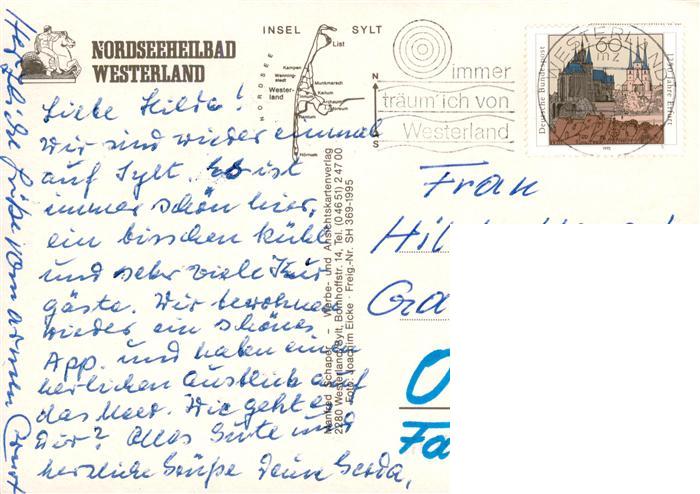 NORDSEEHEILBAD
WESTERLAND
INSEL SYLT
List
NORDSEE
Kampen
Wenning-
stedt
Munkmarsch
Wester-
land
Keitum
Archsum
Morsum
Rantum
Hörnum
N
S
immer
träum'ich von
Westerland
WESTERLAND
60
Deutsche Bundespost
1250 Jahre Erfurt
1992
Liebe Hilde!
Wir sind wieder einmal
auf Sylt. Es ist
immer schön hier,
ein bisschen kühl
und sehr viele Kur
gäste. Wir bewohnen
wieder ein schönes
App. und haben einen
herrlichen Ausblick auf
das Meer. Wie geht es
Dir? Alles Gute und
herzliche Grüße Deine Gerda,
Herzliche Grüße vom
Manfred Schaper – Werbe- und Ansichtskartenverlag
2280 Westerland/Sylt, Bomhoffstr. 14, Tel. (0 46 51) 2 47 00
Foto: Joachim Eicke - Freig.-Nr. SH 369-1995
Frau